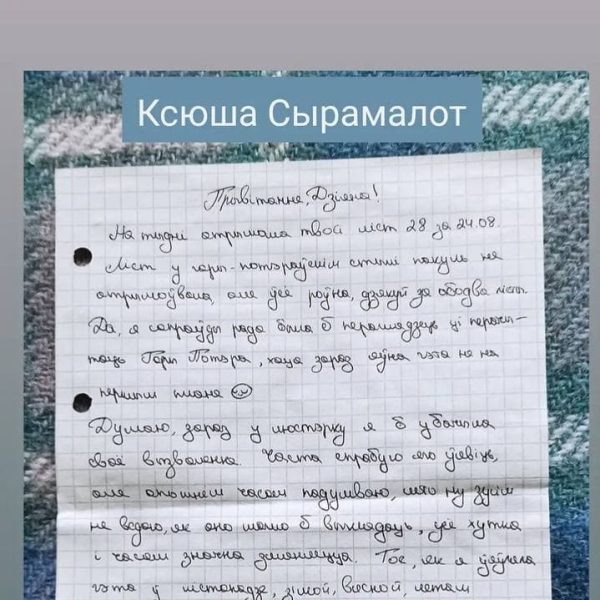 Ксюша Сырамалот
Прывітанне, Дзіяна!
На тыдні атрымала твой ліст 28 за 24.08.
Ліст у гары-потэраўскім стылі пакуль не
атрымоўвала, але ўсё роўна, дзякуй за абодва лісты.
Да, я сапраўды рада была б перагледзець ці перачы-
таць Гары Потэра, хаця зараз яўна гэта не на
першым плане
Думаю, зараз у люстэрку я б убачыла
сваё вызваленне. Часта спрабую яго ўявіць,
але апошнім часам падумваю, што ну зусім
не ведаю, як яно магло б выглядаць, усё хутка
і часам значна змяняецца. Тое, як я ўяўляла
гэта ў лістападзе, зімой, вясной, летам